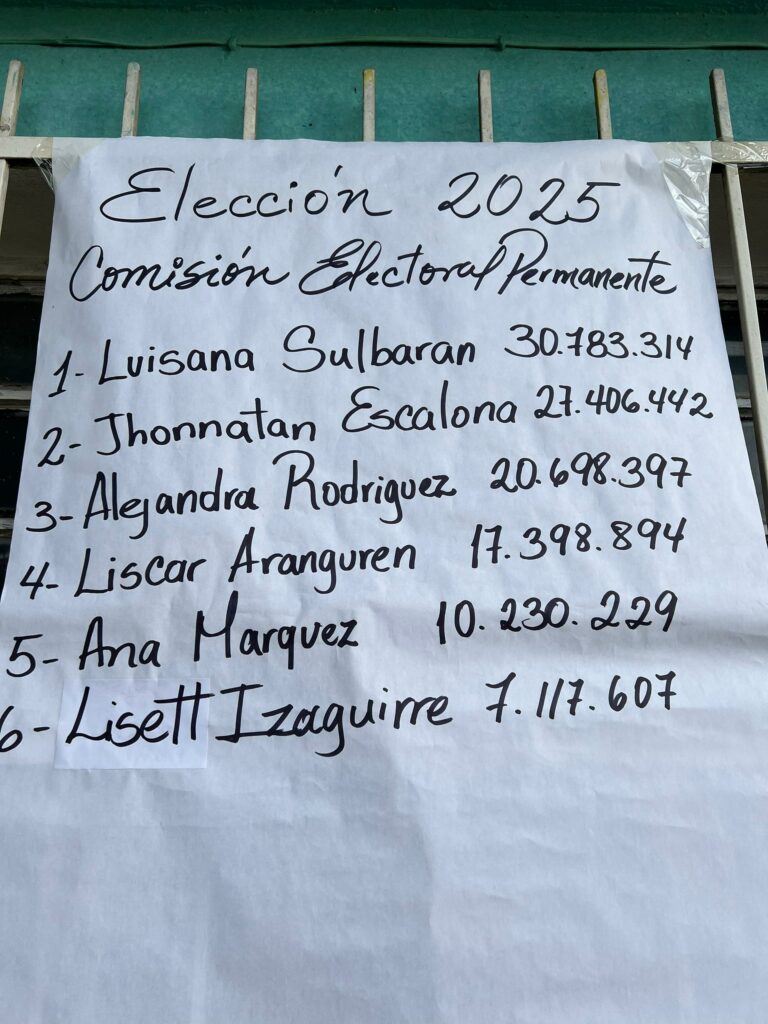 Elección 2025
Comisión Electoral Permanente
1- Luisana Sulbaran 30.783.314
2- Jhonnatan Escalona 27.406.442
3- Alejandra Rodriguez 20.698.397
4- Liscar Aranguren 17.398.894
5- Ana Marquez 10.230.229
6- Lisett Izaguirre 7.117.607